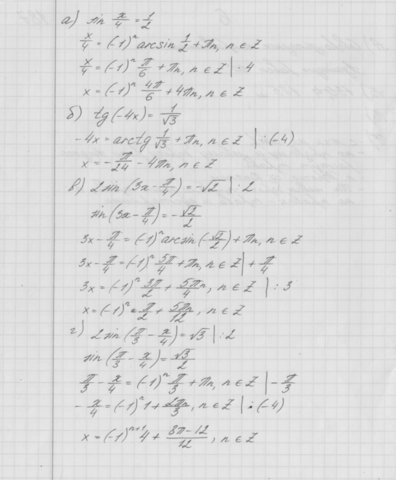 а) sin x/4 = 1/2
x/4 = (-1)^n arcsin 1/2 + πn, n ∈ Z
x/4 = (-1)^n π/6 + πn, n ∈ Z | · 4
x = (-1)^n 4π/6 + 4πn, n ∈ Z
б) tg(-4x) = 1/√3
-4x = arctg 1/√3 + πn, n ∈ Z | :(-4)
x = - π/24 - 4πn, n ∈ Z
в) 2sin(3x - π/4) = -√2 | :2
sin(3x - π/4) = -√2/2
3x - π/4 = (-1)^n arcsin(-√2/2) + πn, n ∈ Z
3x - π/4 = (-1)^n 5π/4 + πn, n ∈ Z | + π/4
3x = (-1)^n 3π/2 + 5πn/4, n ∈ Z | :3
x = (-1)^n · π/2 + 5πn/12, n ∈ Z
г) 2sin(π/3 - x/4) = √3 | :2
sin(π/3 - x/4) = √3/2
π/3 - x/4 = (-1)^n π/3 + πn, n ∈ Z | - π/3
- x/4 = (-1)^n 1 + 2πn/3, n ∈ Z | ·(-4)
x = (-1)^(n+1) 4 + (8π-12)/12, n ∈ Z